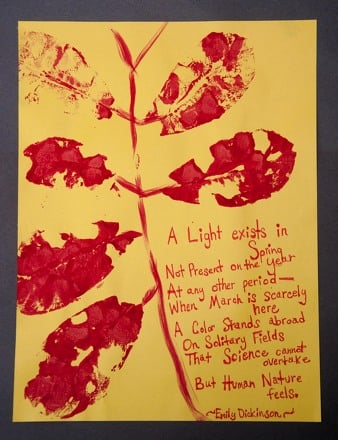 A Light exists in
Spring
Not Present on the Year
At any other period—
When March is scarcely
here
A Color Stands abroad
On Solitary Fields
That Science cannot
overtake
But Human Nature
feels.
~Emily Dickinson~